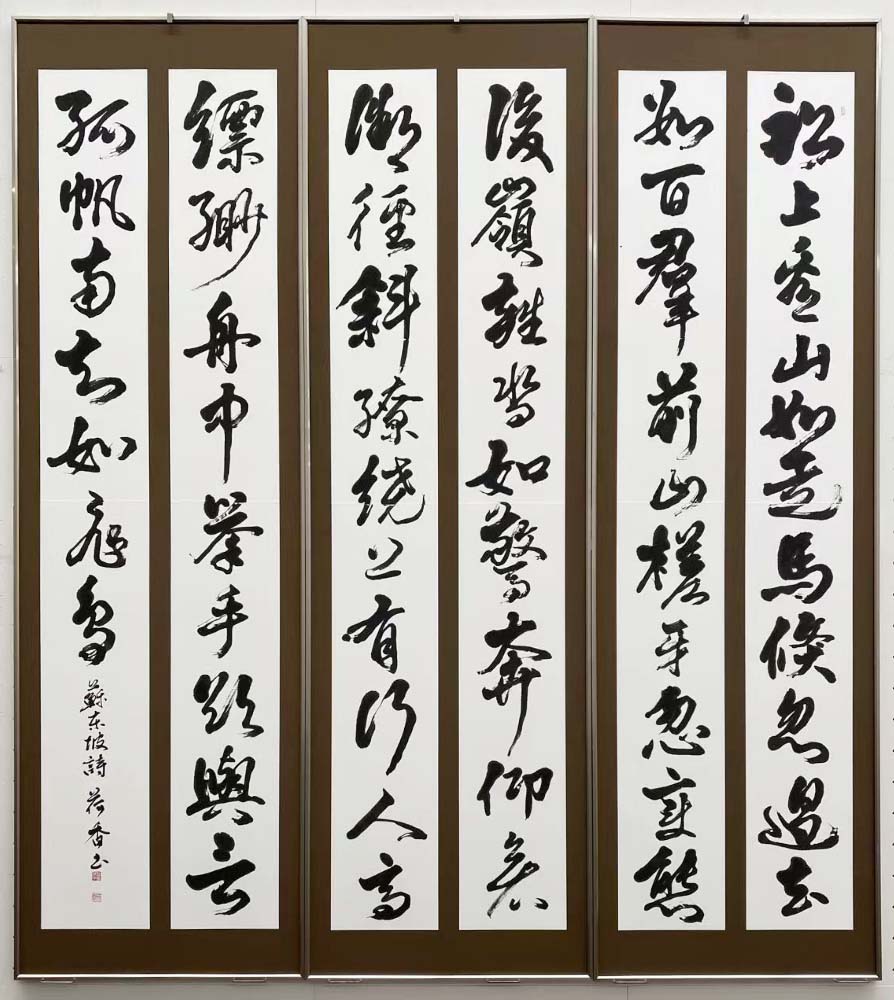 船上看山如走馬倏忽過去
數百羣前山槎牙忽變態
後嶺雜沓如驚奔仰看
微徑斜繚繞上有行人高
縹緲舟中舉手欲與言
孤帆南去如飛鳥
蘇東坡詩 荷香書